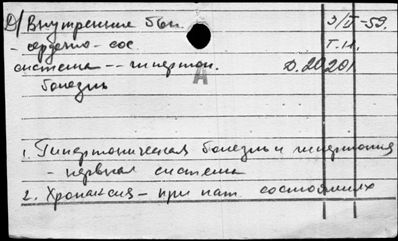 Д/ Внутренние бол. 3/V-59.
- сердечно-сос. Т.И.
система -- гипертон. Д. 20201
болезнь
А
1. Гипертоническая болезнь и гипертония
- нервная система
2. Хронаксия - при пат. состояниях